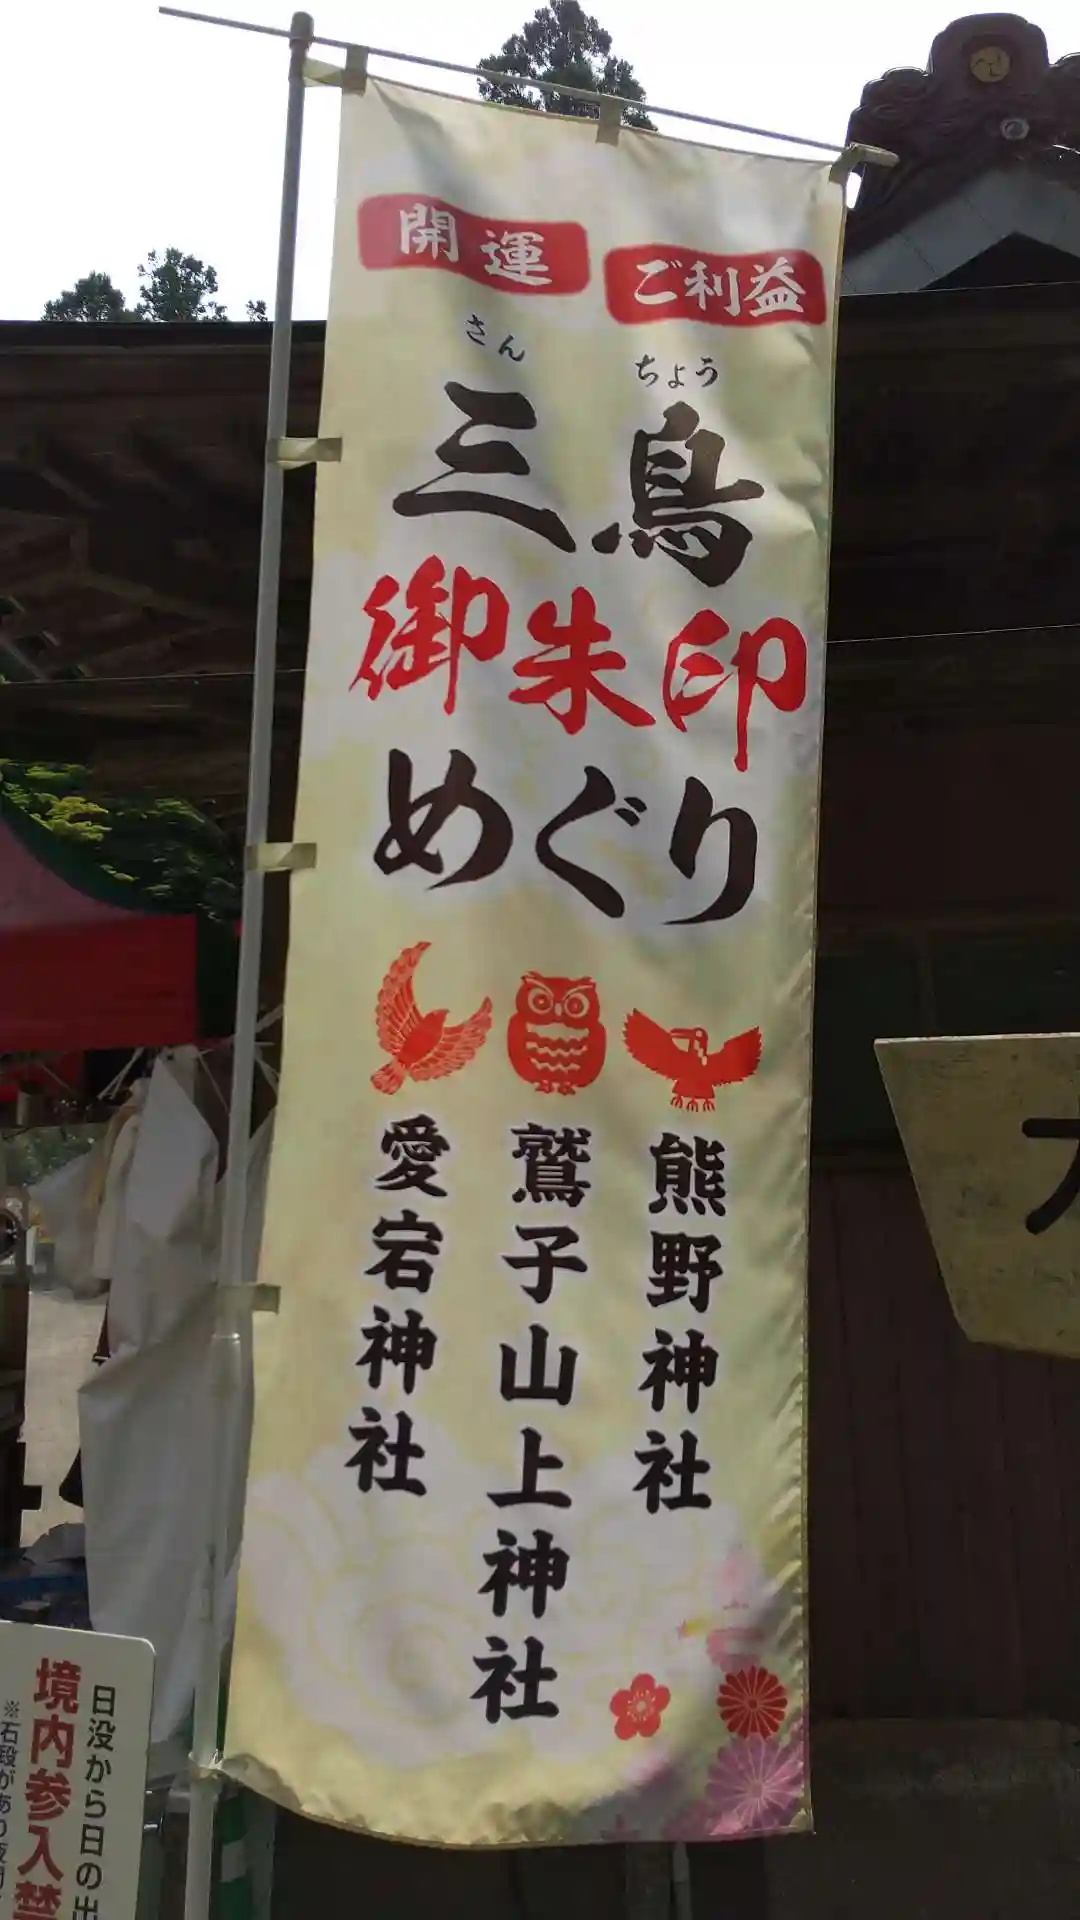 開運
ご利益
さん ちょう
三鳥
御朱印
めぐり
熊野神社
鷲子山上神社
愛宕神社
日没から日の出
境内参入禁
※石段があり夜間